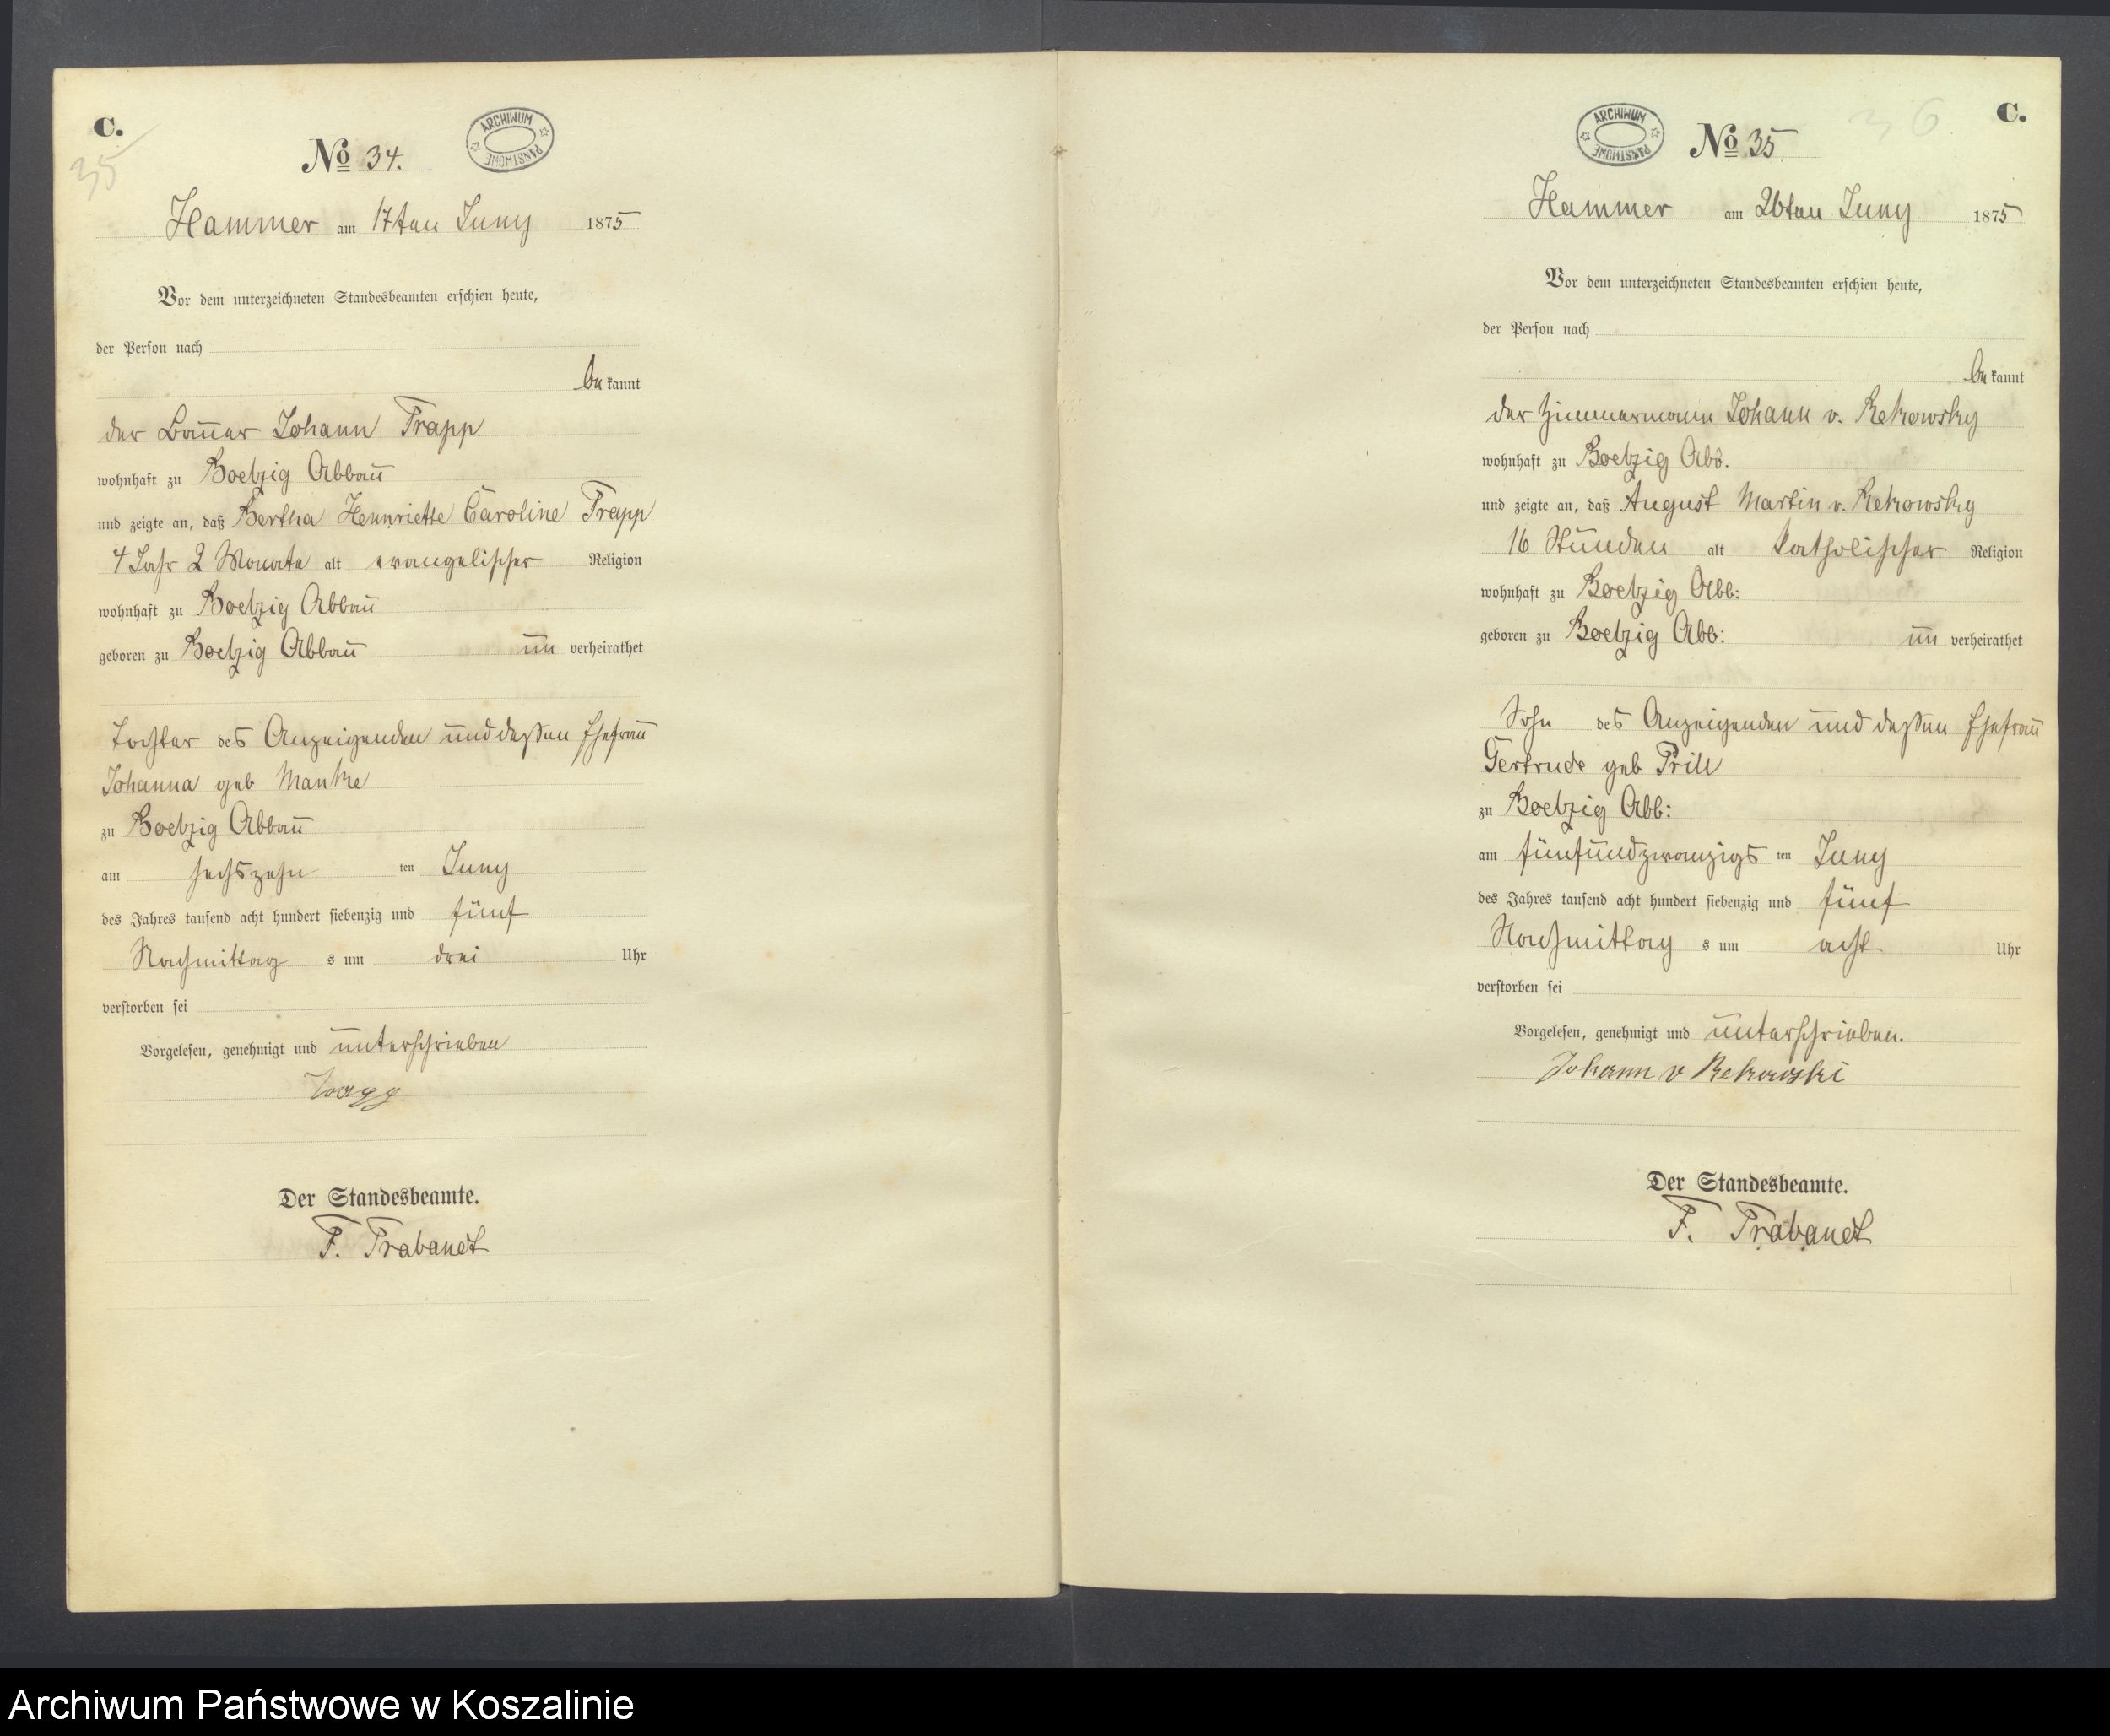 C.
35
ARCHIWUM PAŃSTWOWE
No 34.
Hammer am 17ten Juny 1875
Vor dem unterzeichneten Standesbeamten erschien heute,
der Person nach
be kannt
der Bauer Johann Trapp
wohnhaft zu Boetzig Abbau
und zeigte an, daß Bertha Hennriette Caroline Trapp
4 Jahr 2 Monate alt evangelischer Religion
wohnhaft zu Boetzig Abbau
geboren zu Boetzig Abbau un verheirathet
Tochter des Anzeigenden und dessen Ehefrau
Johanna geb Manke
zu Boetzig Abbau
am sechszehn ten Juny
des Jahres tausend acht hundert siebenzig und fünf
Nachmittag s um drei Uhr
verstorben sei
Vorgelesen, genehmigt und unterschrieben
Der Standesbeamte.
F. Trabandt
C.
36
ARCHIWUM PAŃSTWOWE
No 35
Hammer am 26ten Juny 1875
Vor dem unterzeichneten Standesbeamten erschien heute,
der Person nach
be kannt
der Zimmermann Johann v. Rekowsky
wohnhaft zu Boetzig Abb.
und zeigte an, daß August Martin v. Rekowsky
16 Stunden alt katholischer Religion
wohnhaft zu Boetzig Abb:
geboren zu Boetzig Abb: un verheirathet
Sohn des Anzeigenden und dessen Ehefrau
Gertrude geb Prill
zu Boetzig Abb:
am fünfundzwanzigs ten Juny
des Jahres tausend acht hundert siebenzig und fünf
Nachmittag s um acht Uhr
verstorben sei
Vorgelesen, genehmigt und unterschrieben.
Johann v Rekowski
Der Standesbeamte.
F. Trabandt
Archiwum Państwowe w Koszalinie